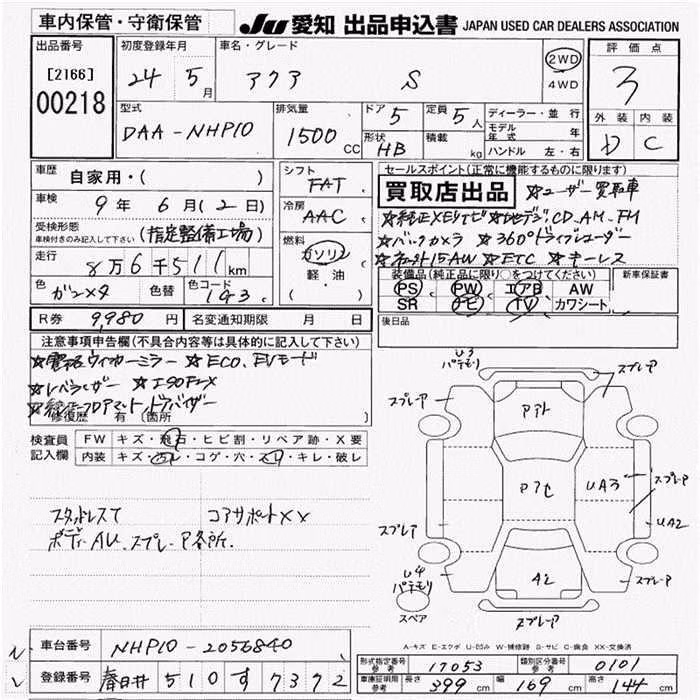 車内保管・守衛保管
JU 愛知 出品申込書 JAPAN USED CAR DEALERS ASSOCIATION
出品番号 [2166] 00218
初度登録年月 24年 5月
車名・グレード アクア S
2WD 4WD
評価点 3
外装 D 内装 C
型式 DAA-NHP10
排気量 1500 CC
ドア 5 定員 5人
形状 HB 積載 kg
ディーラー・並行
モデル年式 年
ハンドル 左・右
車歴 自家用・( )
車検 9年 6月(2日)
受検形態 車検付きのみ記入して下さい (指定整備工場)
走行 8万6千511km
色 ガンメタ 色替 色コード 1G3
シフト FAT
冷房 AAC
燃料 ガソリン 軽油 ( )
セールスポイント(正常に機能するものに限り)
買取店出品 ☆ユーザー買取車
☆純正XEナビ ☆地デジ、CD、AM、FM
☆バックカメラ ☆360°ドライブレコーダー
15AW ☆ETC ☆キーレス
装備品(純正品に限り○をつけてください) 新車保証書
PS PW エアB AW
SR ナビ TV カワシート
後日品
R券 9,980円 名変通知期限 月 日
注意事項申告欄(不具合内容等は具体的に記入して下さい)
☆電格ウィンカーミラー ☆ECO、EVモード
☆レベライザー ☆ISOFIX
☆純正フロアマット、ドアバイザー
修復歴 有 (箇所
検査員記入欄 FW キズ・飛石・ヒビ割・リペア跡・X要
内装 キズ・汚レ・コゲ・穴・スリ・キレ・破レ
スタッドレスT コアサポートXX
ボディーAU、スプレーア各所.
U3 パテモリ
スプレーア
スプレーア
Pアト
P7セ
UA3
スプレーア
UA2
スプレーア
U4 パテモリ
A2
スプレーア
スペア
スプレーア
A-キズ E-エクボ U-凹み W-補修跡 S-サビ C-腐食 XX-交換済
車台番号 NHP10-2056840
登録番号 春日井 510 す 7372
形式指定番号 参考 17053 類別区分番号 参考 0101
車庫証明 参考 長さ 399cm 幅 169cm 高さ 144cm